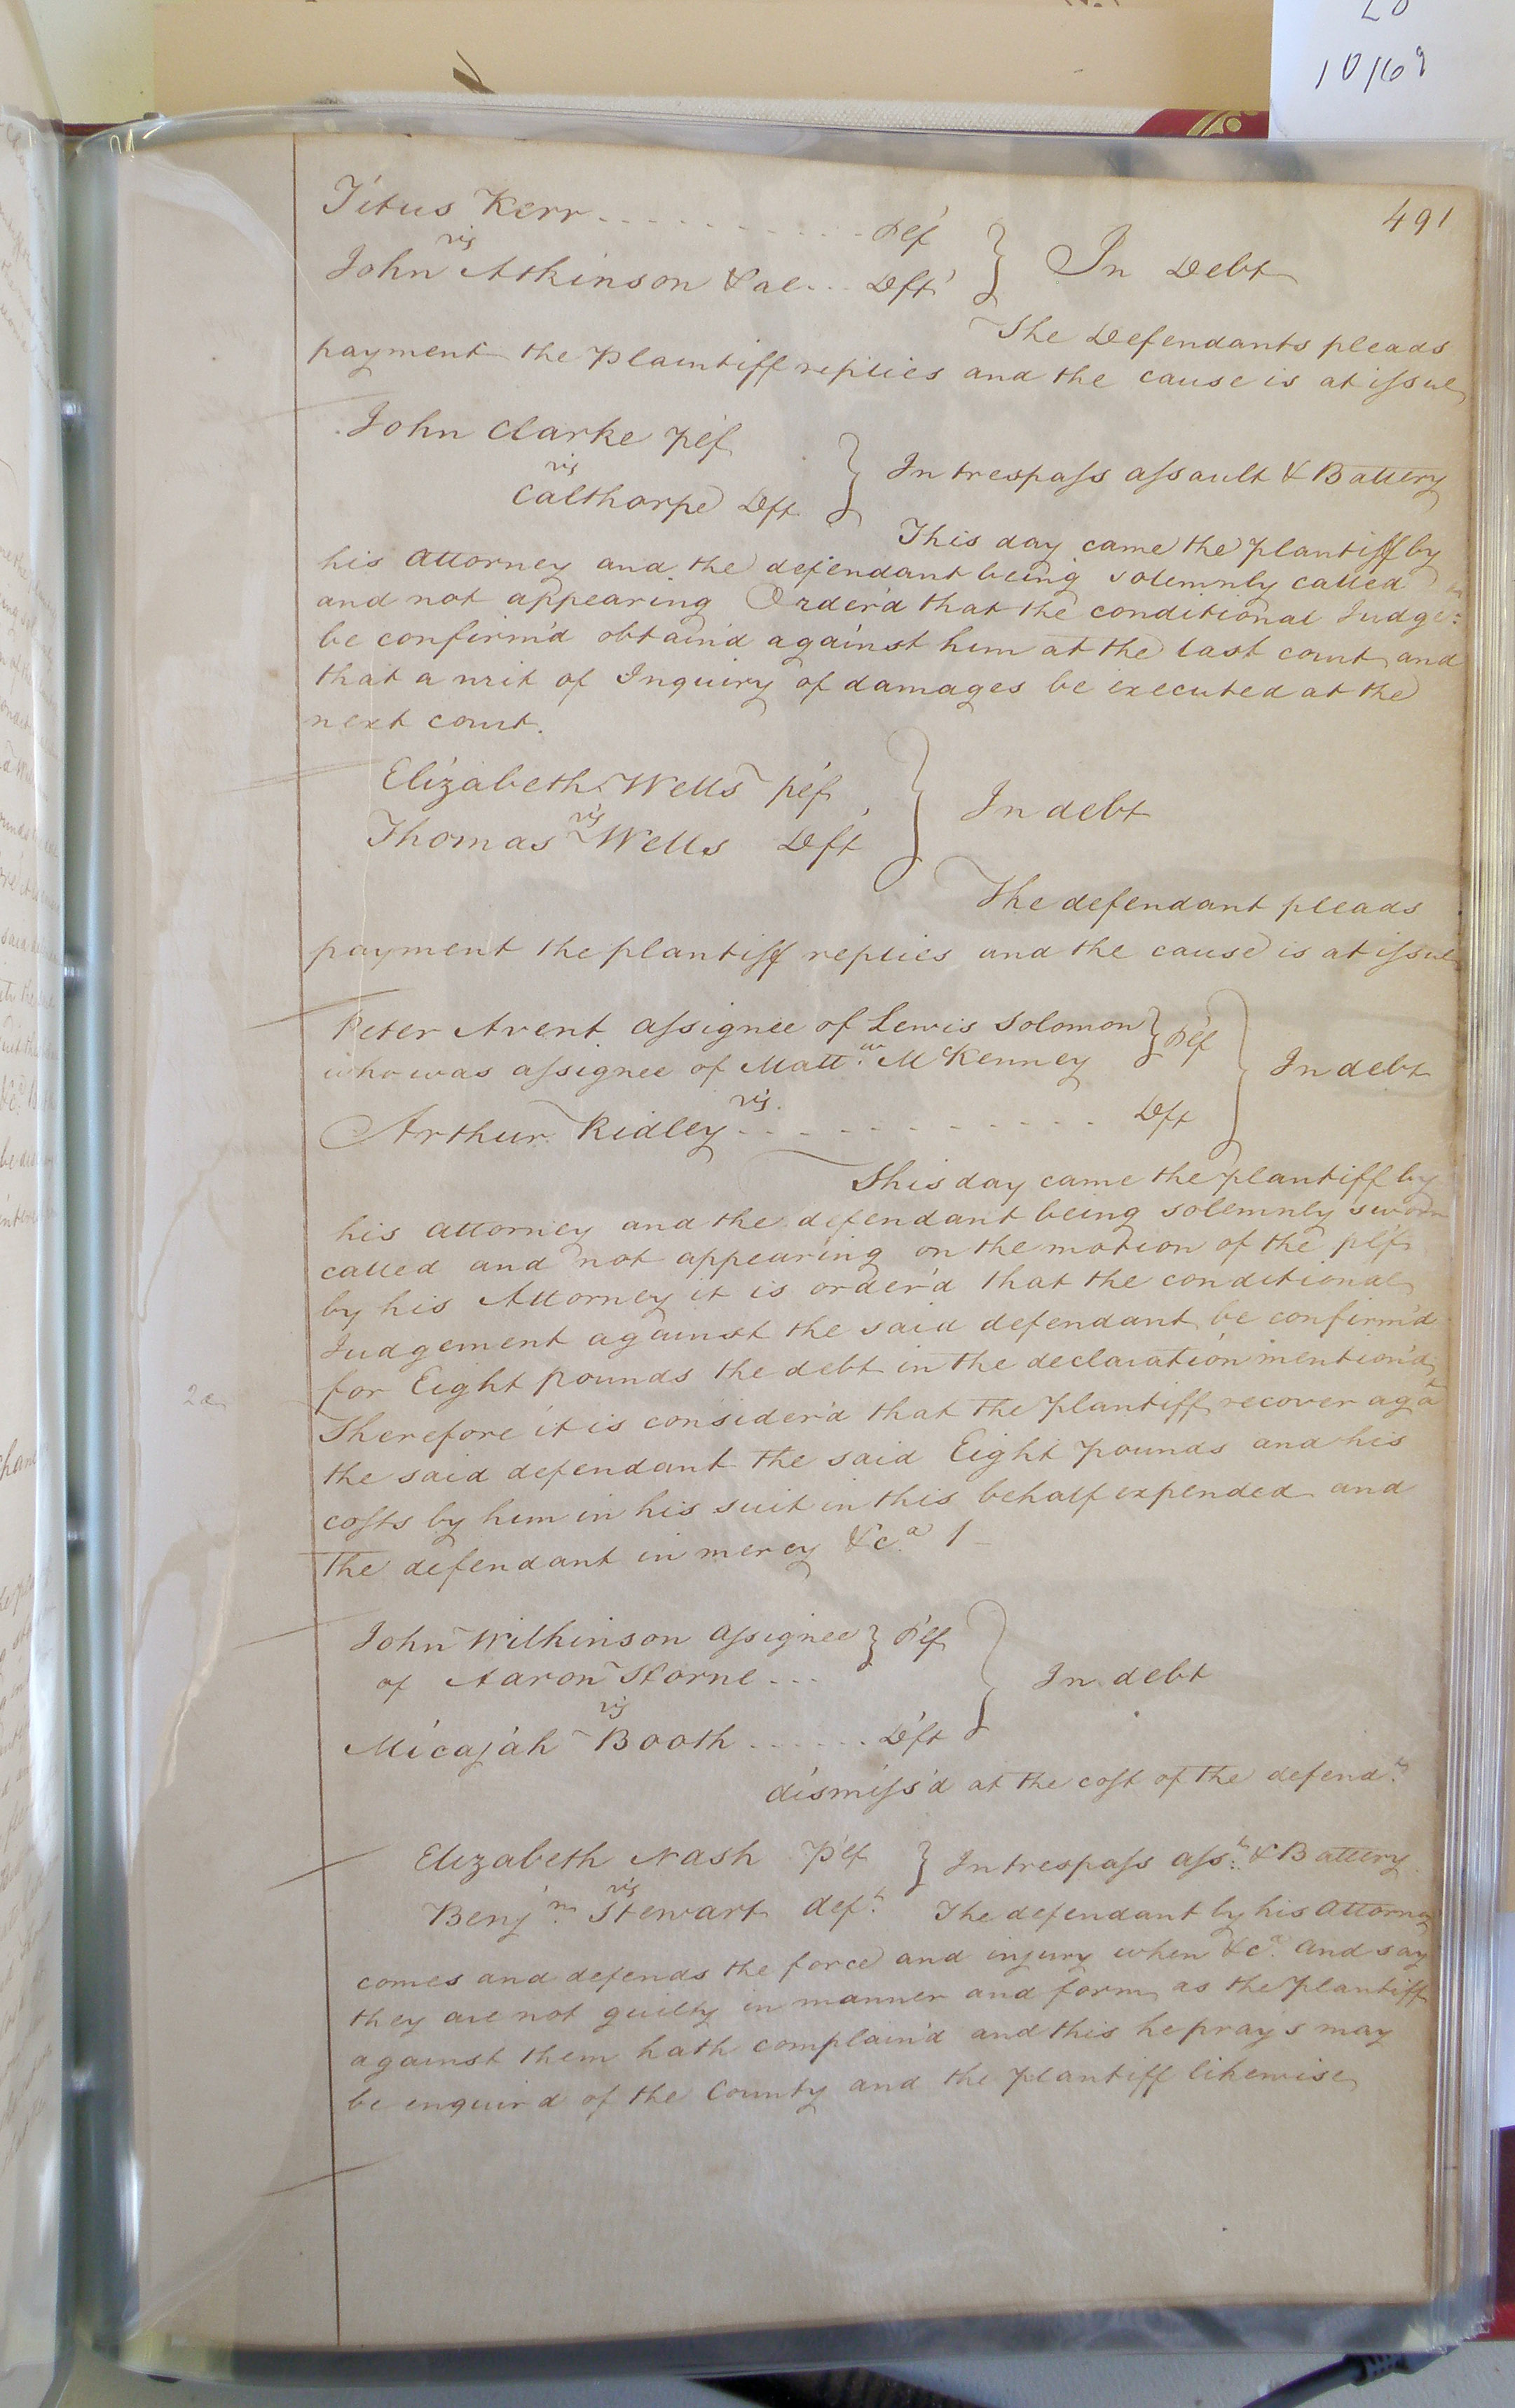 491
Titus Kerr . . . . . . . . . . plf
vs
John Atkinson & al . . . Dft
} In Debt
The Defendants pleads
payment the Plaintiff replies and the cause is at issue
John Clarke plf
vs
Calthorpe Dft
} In trespass assault & Battery
This day came the plantiff by
his attorney and the defendant being solemnly called
and not appearing Order'd that the conditional Judge:t
be confirm'd obtain'd against him at the last court and
that a writ of Inquiry of damages be executed at the
next court.
Elizabeth Wells plf
vs
Thomas Wells Dft
} In debt
The defendant pleads
payment the plantiff replies and the cause is at issue
Peter Avent assignee of Lewis Solomon } plf
who was assignee of Matt.w McKenney
vs.
Arthur Ridley . . . . . . . . . . . . Dft
} In debt
This day came the plantiff by
his attorney and the defendant being solemnly sworn
called and not appearing on the motion of the plf
by his Attorney it is order'd that the conditional
Judgement against the said defendant be confirm'd
for Eight pounds the debt in the declaration mention'd
Therefore it is consider'd that the plantiff recover aga.t
the said defendant the said Eight pounds and his
costs by him in his suit in this behalf expended and
the defendant in mercy &c.a /
John Wilkinson assignee } plf
of Aaron Storne . . .
vs
Micajah Booth . . . . . . Dft
} In debt
dismiss'd at the cost of the defend.t
Elizabeth Nash plf } In trespass ass:t & Battery
vs
Benj.n Stewart def.t The defendant by his Attorney
comes and defends the force and injury when &c.a and say
they are not guilty in manner and form as the plantiff
against them hath complain'd and this he prays may
be enquir'd of the County and the plantiff likewise